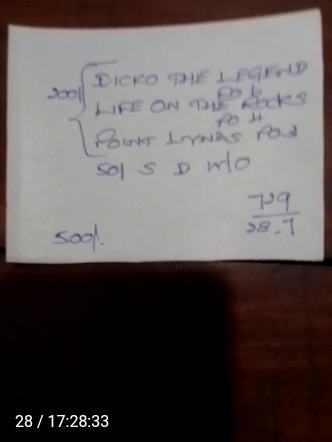 200/ { DICKO THE LEGEND
PO 6
LIFE ON THE ROCKS
PO 4
POINT LYNAS PO2
50/ S D W/O
729
28-7
500/.
28 / 17:28:33